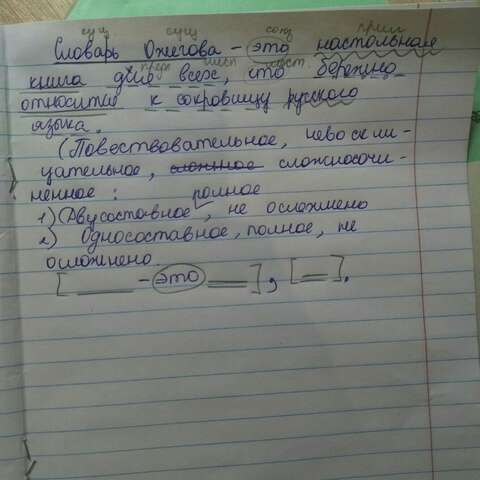 сущ сущ союз прил
Словарь Ожегова - это настольная
предл мест.
книга для всех, кто бережно
относится к сокровищу русского
языка.
(Повествовательное, невоскли-
цательное, сложное сложносочи-
ненное:
полное
1) Двусоставное, не осложнено
2) Односоставное, полное, не
осложнено.
[ - это ], [ ].